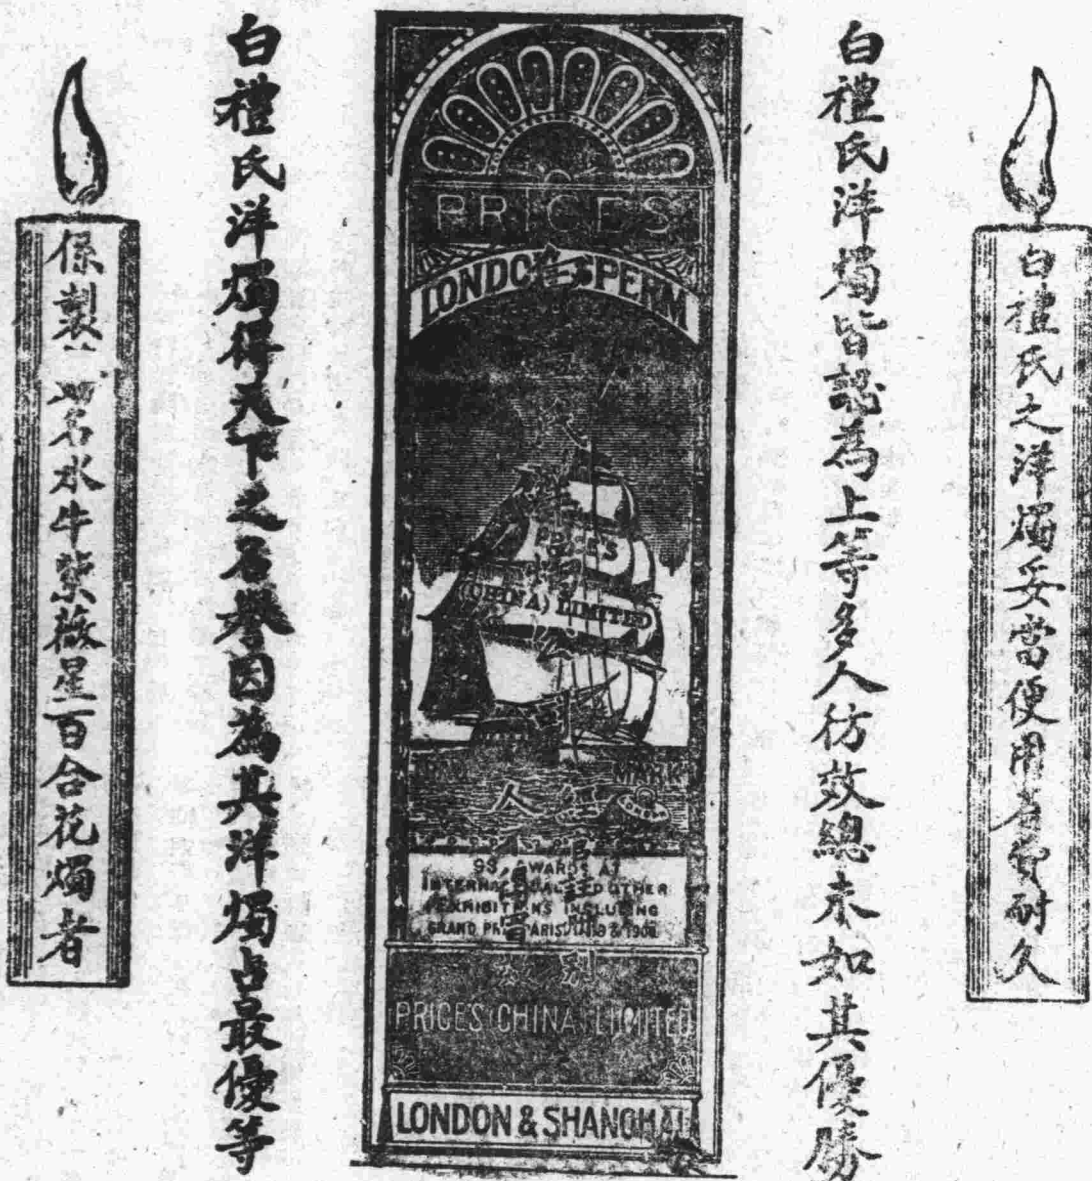 白禮氏之洋燭妥當便用者實耐久
白禮氏洋燭皆認為上等多人彷效總未如其優勝
PRICES
LONDON SPERM
PRICE'S
(CHINA) LIMITED
MARK
99 AWARDS AT
INTERNATIONAL AND OTHER
EXHIBITIONS INCLUDING
GRAND PRIX PARIS
PRICES (CHINA) LIMITED
LONDON & SHANGHAI
白禮氏洋燭公司
白禮氏洋燭得天下之名譽因為其洋燭占最優等
係製名水牛紫薇星百合花燭者